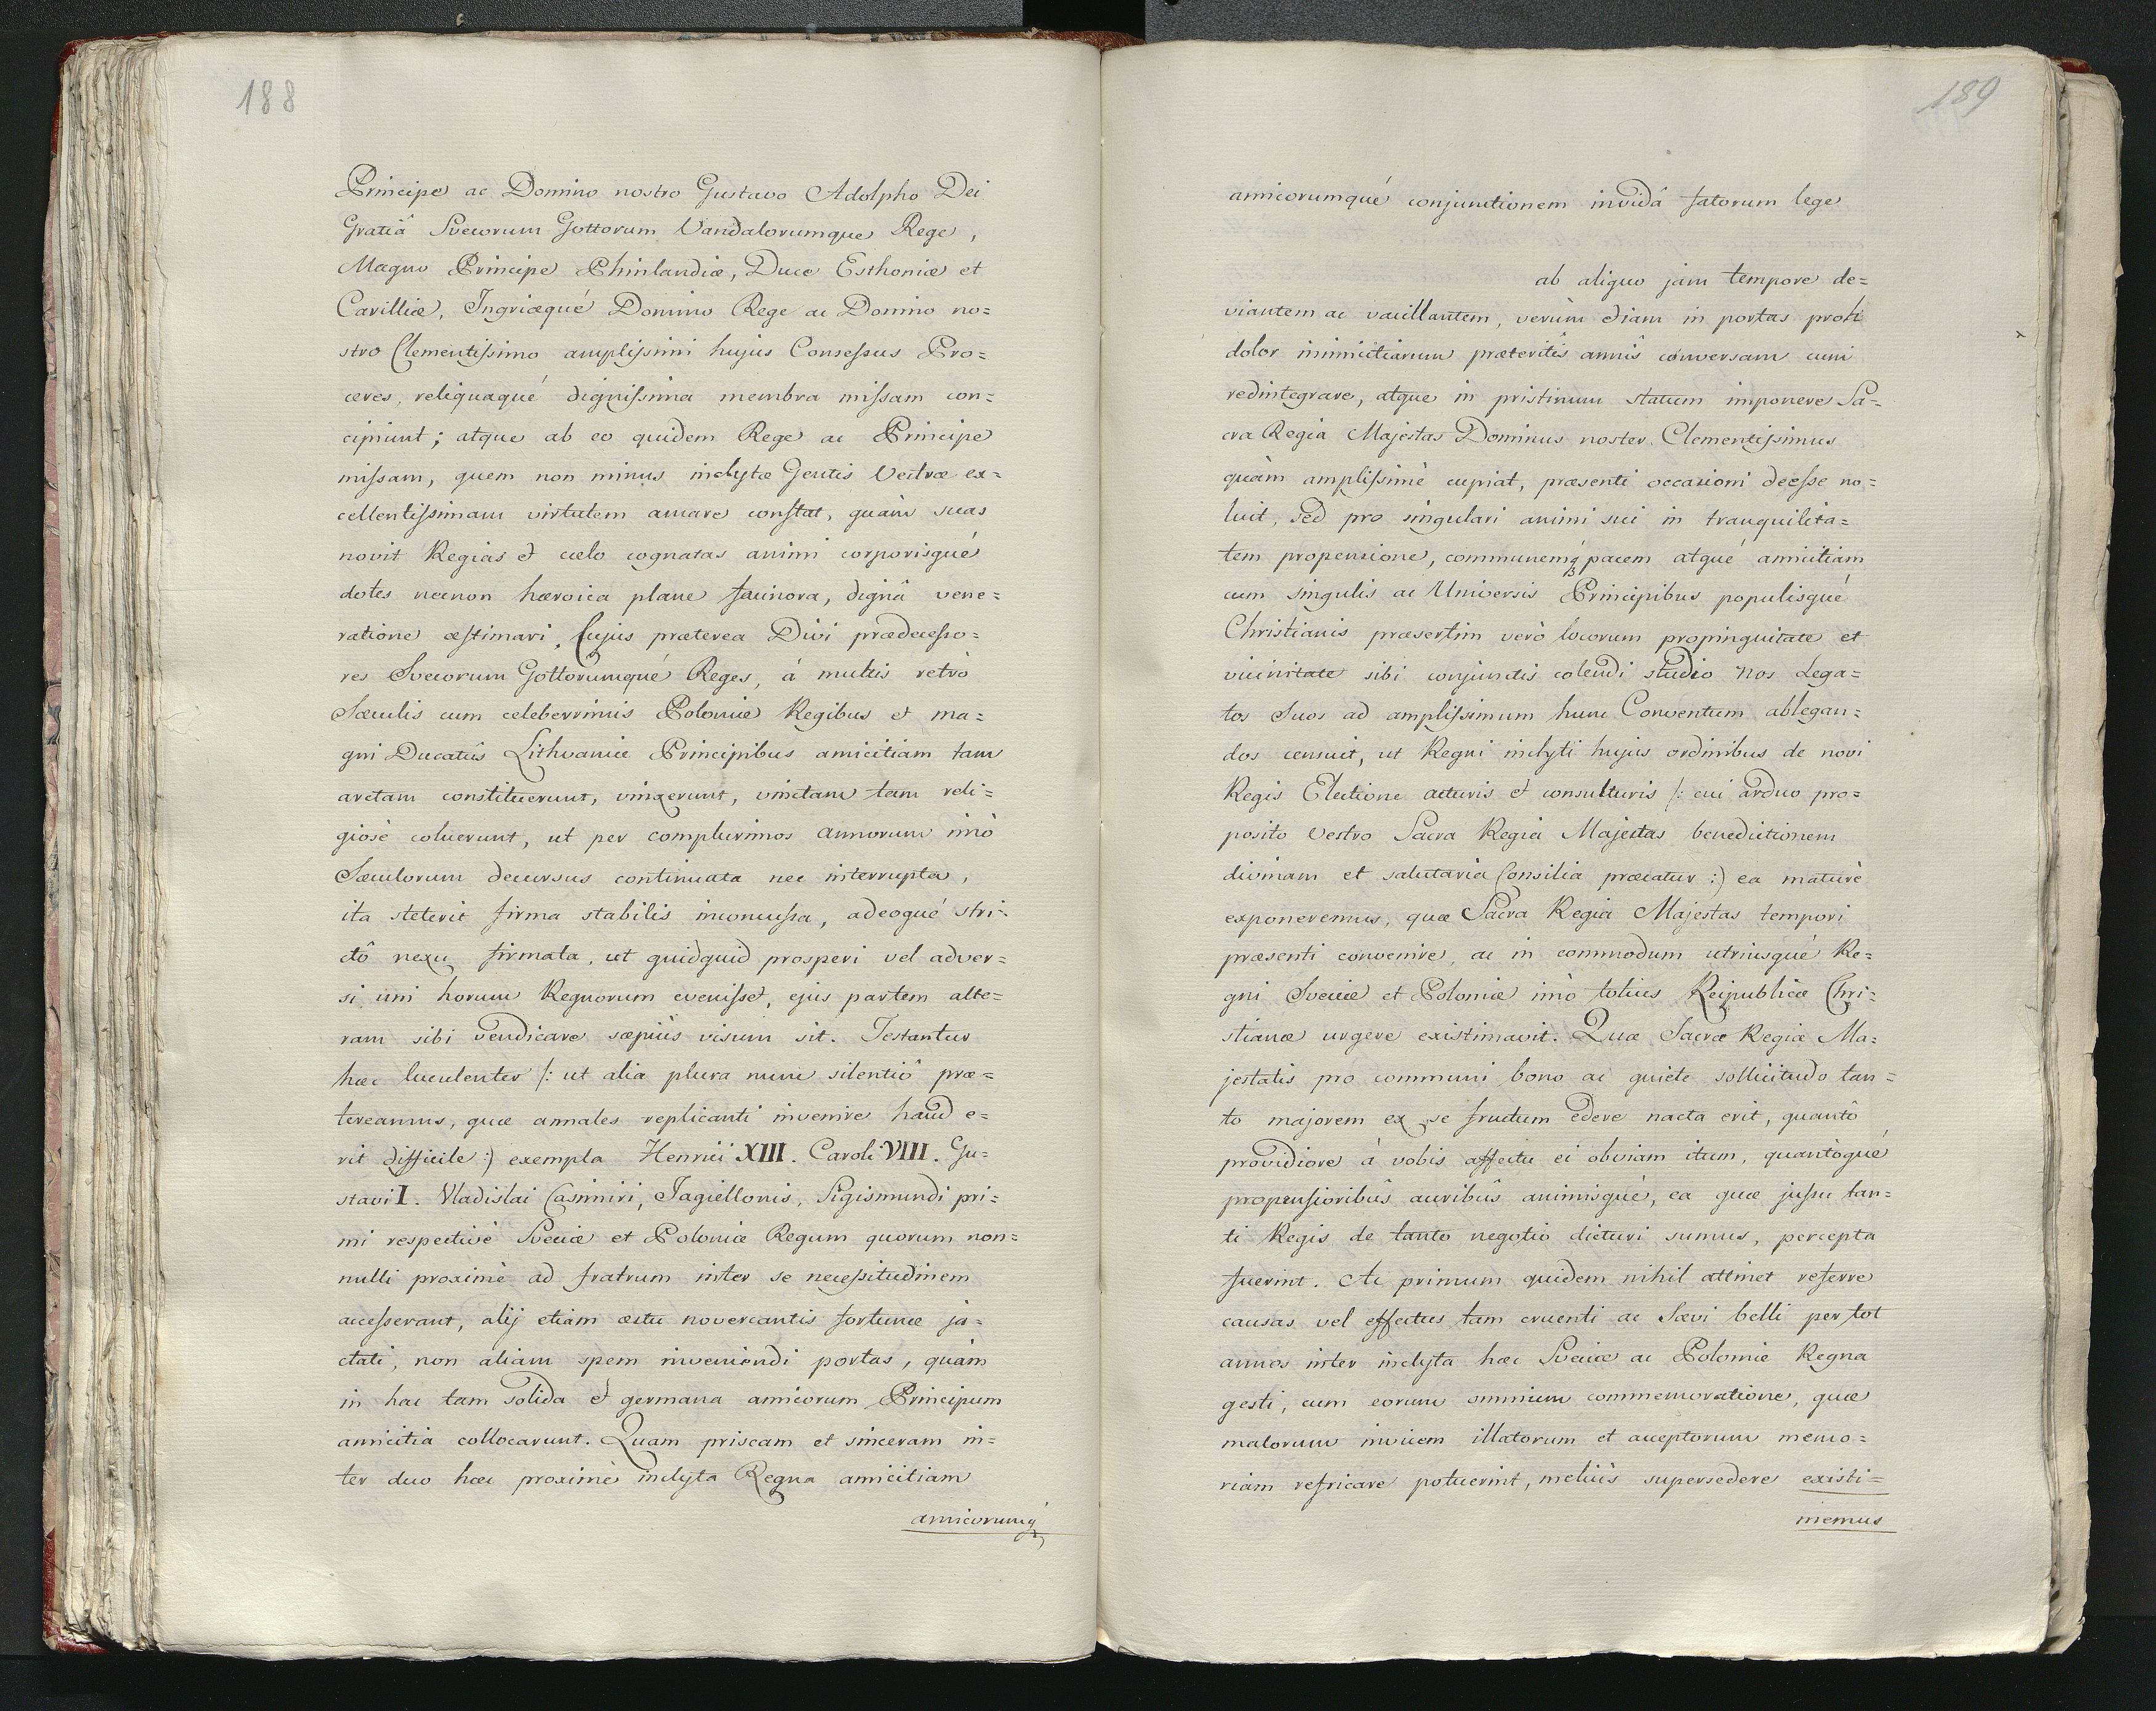 188
Principe ac Domino nostro Gustavo Adolpho Dei
Gratiâ Svecorum Gottorum Vandalorumque Rege,
Magno Principe Phinlandiæ, Duce Esthoniæ et
Carilliæ, Ingriæqué Domino Rege ac Domino no=
stro Clementissimo amplissimi hujus Consessus Pro=
ceres, reliquaqué dignissima membra missam con=
cipiunt; atque ab eo quidem Rege ac Principe
missam, quem non minus inclytæ Gentis Vestræ ex=
cellentissimam virtutem amare constat, quàm suas
novit Regias et cœlo cognatas animi corporisqué
dotes necnon hæroica plane facinora, dignâ vene=
ratione æstimari. Cujus præterea Divi prædecesso=
res Svecorum Gottorumqué Reges, á multis retrò
Sæculis cum celeberrimis Poloniæ Regibus et ma=
gni Ducatûs Lithvaniæ Principibus amicitiam tam
arctam constituerunt, vinxerunt, vinctam tam reli=
giosè coluerunt, ut per complurimos annorum imò
Sæculorum decursus continuata nec interrupta,
ita steterit firma stabilis inconcussa, adeoqué stri=
ctô nexu firmata, ut quidquid prosperi vel adver=
si uni horum Regnorum evenisset, ejus partem alte=
ram sibi vendicare sæpiùs visum sit. Testantur
hæc luculenter /: ut alia plura nunc silentiô præ=
tereamus, quæ annales replicanti invenire haud e=
rit difficile :) exempla Henrici XIII. Caroli VIII. Gu=
stavi I. Vladislai Casimiri, Jagiellonis, Sigismundi pri=
mi respectivè Sveciæ et Poloniæ Regum quorum non=
nulli proximè ad fratrum inter se necessitudinem
accesserant, alij etiam æstu novercantis fortunæ ja=
ctati, non aliam spem inveniendi portas, quàm
in hac tam solida et germana amicorum Principum
amicitia collocarunt. Quam priscam et sinceram in=
ter duo hæc proximè inclyta Regna amicitiam
amicorumq₃
189
amicorumqué conjunctionem invidâ fatorum lege
ab aliquo jam tempore de=
viantem ac vacillantem, verùm etiam in portas proh
dolor inimicitiarum præteritis annis conversam cum
redintegrare, atque in pristinum statum imponere Sa=
cra Regia Majestas Dominus noster Clementissimus
quàm amplissimè cupiat, præsenti occasioni deesse no=
luit, sed pro singulari animi sui in tranquilita=
tem propensione, communemq₃ pacem atqué amicitiam
cum singulis ac Universis Principibus populisqué
Christianis præsertim verò locorum propinquitate et
vicinitate sibi conjunctis colendi studio nos Lega=
tos Suos ad amplissimum hunc Conventum ablegan=
dos censuit, ut Regni inclyti hujus ordinibus de novi
Regis Electione acturis et consulturis /: cui arduo pro=
posito Vestro Sacra Regia Majestas benedictionem
divinam et salutaria Consilia præcatur :) ea maturè
exponeremus, quæ Sacra Regia Majestas tempori
præsenti convenire, ac in commodum utriusqué Re=
gni Sveciæ et Poloniæ imò totius Reipublicæ Chri=
stianæ urgere existimavit. Quæ Sacræ Regiæ Ma=
jestatis pro communi bono ac quiete sollicitudo tan=
to majorem ex se fructum edere nacta erit, quantô
providiore á vobis affectu ei obviam itum, quantòqué
propensioribûs auribûs animisqué, ea quæ jussu tan=
ti Regis de tanto negotio dicturi sumus, percepta
fuerint. Ac primum quidem nihil attinet referre
causas vel effectus tam cruenti ac Sævi belli per tot
annos inter inclyta hæc Sveciæ ac Poloniæ Regna
gesti, cum eorum omnium commemoratione, quæ
malorum invicem illatorum et acceptorum memo=
riam refricare potuerint, meliùs supersedere existi=
memus